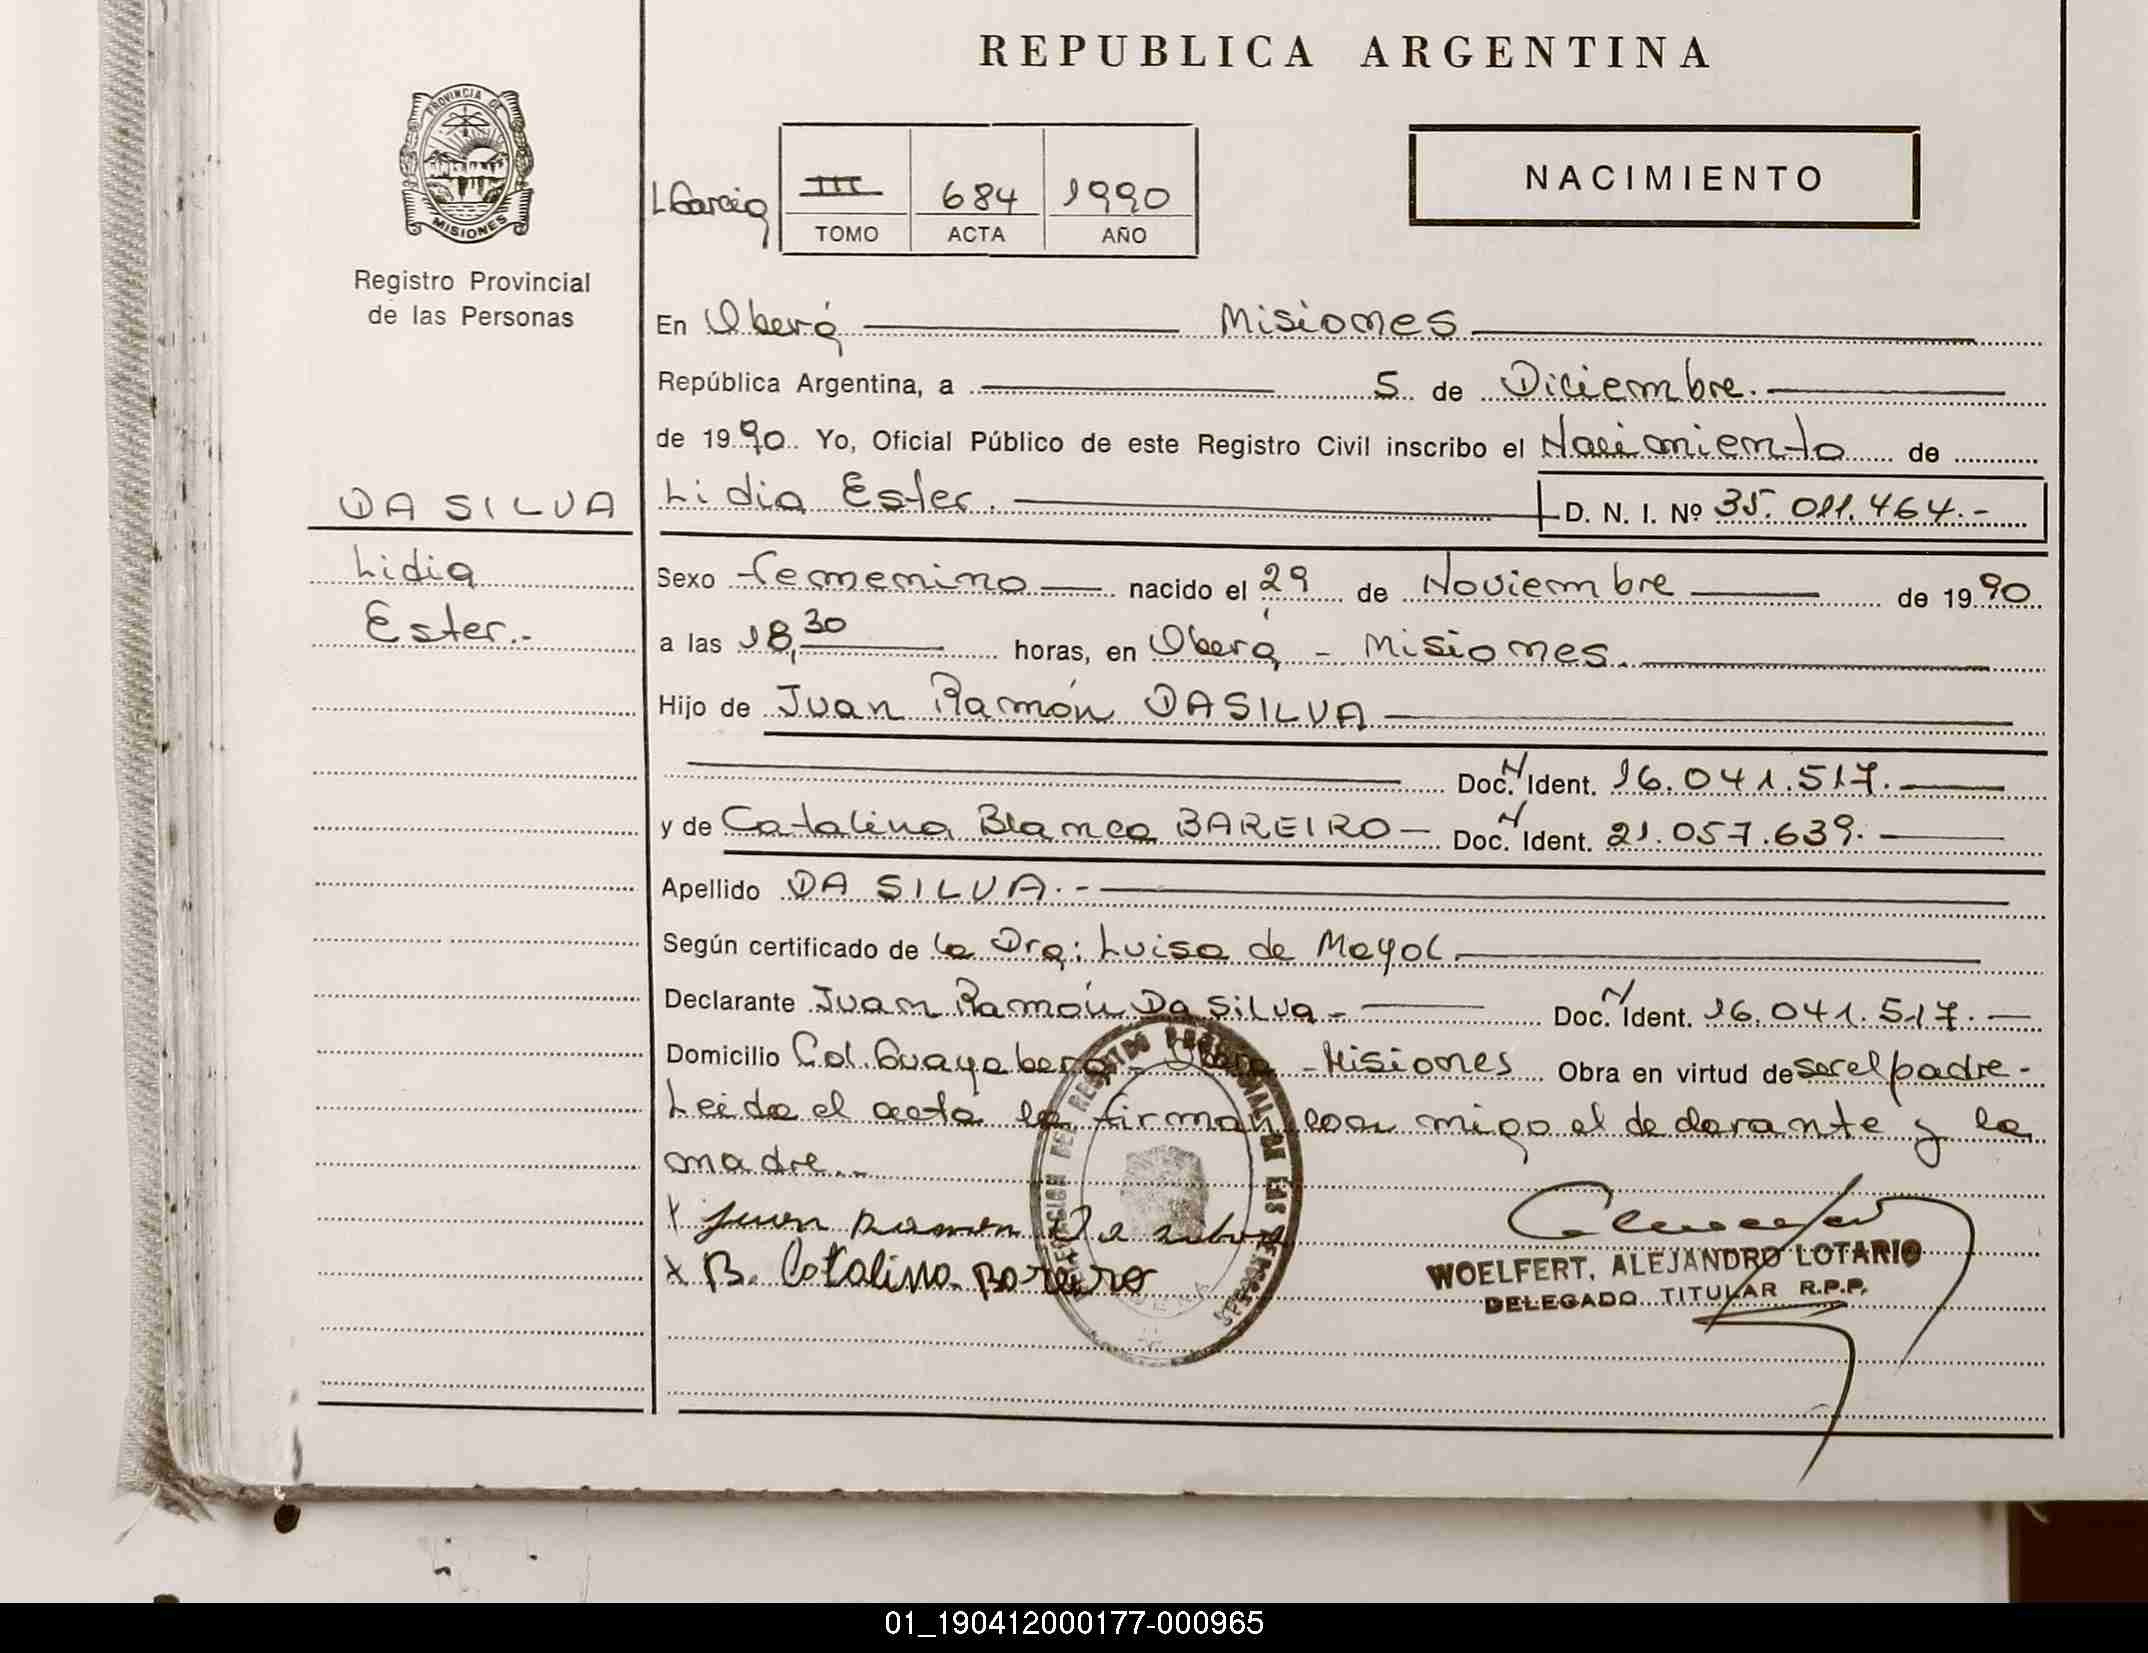 REPUBLICA ARGENTINA
PROVINCIA DE
MISIONES
Registro Provincial
de las Personas
NACIMIENTO
LGarcia
III 684 1990
TOMO ACTA AÑO
En Oberá Misiones
República Argentina, a 5 de Diciembre.
de 1990 Yo, Oficial Público de este Registro Civil inscribo el Nacimiento de
DA SILVA
Lidia
Ester.-
Lidia Ester. D. N. I. Nº 35.011.464.-
Sexo femenino nacido el 29 de Noviembre de 1990
a las 18,30 horas, en Oberá - Misiones.
Hijo de Juan Ramón DA SILVA
Doc. N Ident. 16.041.517.
y de Catalina Blanca BAREIRO Doc. N Ident. 21.057.639.
Apellido DA SILVA.-
Según certificado de la Dra: Luisa de Mayol.
Declarante Juan Ramón Da Silva - Doc. N Ident. 16.041.517.
Domicilio Col. Guayabera - Oberá - Misiones Obra en virtud de ser el padre -
Leida el acta la firman con migo el declarante y la
madre.-
x Juan Ramon Da silva
x B. Catalina Bareiro
DELEGACION DEL REGISTRO PROVINCIAL DE LAS PERSONAS
WOELFERT, ALEJANDRO LOTARIO
DELEGADO TITULAR R.P.P.
01_190412000177-000965